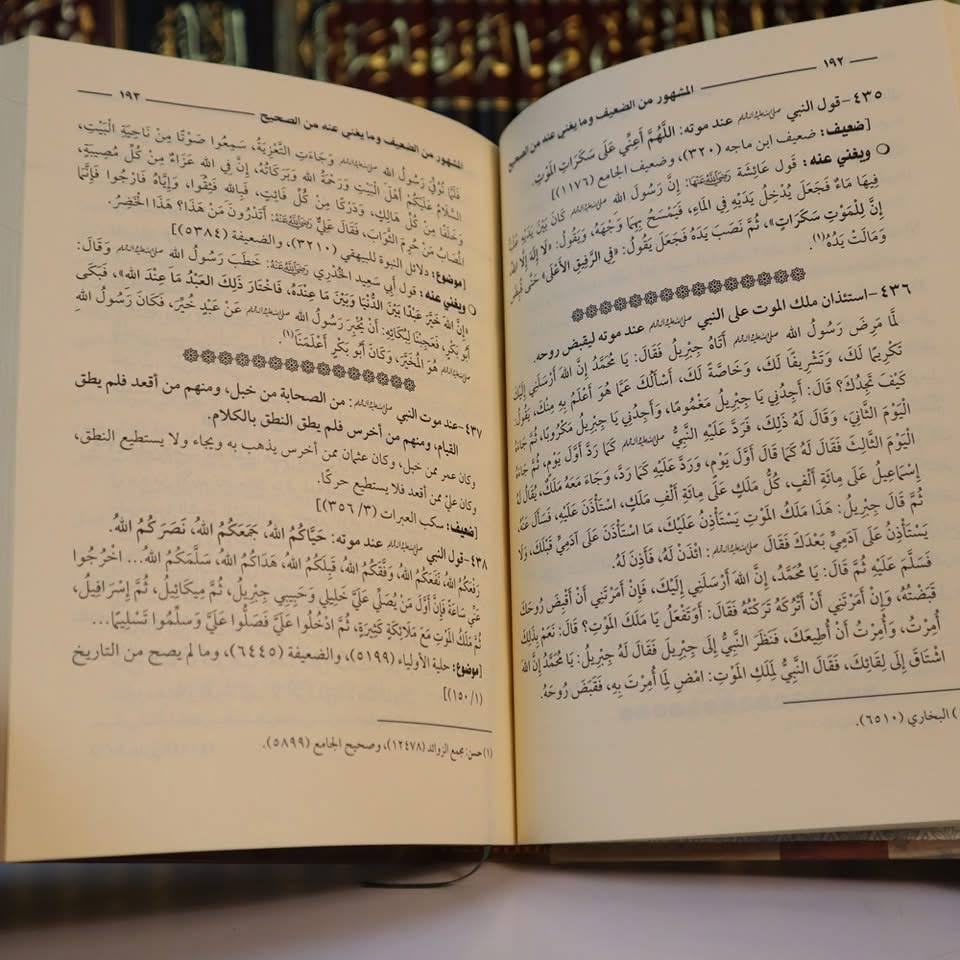 ١٩٢
المشهور من الضعيف وما يغني عنه من الصحيح
٤٣٥-قول النبي ﷺ عند موته: اللَّهُمَّ أَعِنِّي عَلَى سَكَرَاتِ المَوْتِ.
[ضعيف: ضعيف ابن ماجه (٣٢٠)، وضعيف الجامع (١١٧٦)]
ويغني عنه: قَول عَائِشَةَ رَضِيَ اللَّهُ عَنْهَا: إِنَّ رَسُولَ الله ﷺ كَانَ بَيْنَ يَدَيْهِ
فِيهَا مَاءٌ فَجَعَلَ يُدْخِلُ يَدَيْهِ فِي المَاءِ، فَيَمْسَحُ بِهِمَا وَجْهَهُ، وَيَقُولُ: «لَا إِلَهَ إِلَّا اللهُ،
إِنَّ لِلْمَوْتِ سَكَرَاتٍ»، ثُمَّ نَصَبَ يَدَهُ فَجَعَلَ يَقُولُ: «فِي الرَّفِيقِ الأَعْلَى» حَتَّى قُبِضَ
وَمَالَتْ يَدُهُ(١).
٤٣٦-استئذان ملك الموت على النبي ﷺ عند موته ليقبض روحه.
لَمَّا مَرِضَ رَسُولُ الله ﷺ أَتَاهُ جِبْرِيلُ فَقَالَ: يَا مُحَمَّدُ إِنَّ اللهَ أَرْسَلَنِي إِلَيْكَ
تَكْرِيمًا لَكَ، وَتَشْرِيفًا لَكَ، وَخَاصَّةً لَكَ، أَسْأَلُكَ عَمَّا هُوَ أَعْلَمُ بِهِ مِنْكَ، يَقُولُ:
كَيْفَ تَجِدُكَ؟ قَالَ: أَجِدُنِي يَا جِبْرِيلُ مَغْمُومًا، وَأَجِدُنِي يَا جِبْرِيلُ مَكْرُوبًا، ثُمَّ جَاءَهُ
الْيَوْمَ الثَّانِيَ، وَقَالَ لَهُ ذَلِكَ، فَرَدَّ عَلَيْهِ النَّبِيُّ ﷺ كَمَا رَدَّ أَوَّلَ يَوْمٍ، ثُمَّ جَاءَهُ
الْيَوْمَ الثَّالِثَ فَقَالَ لَهُ كَمَا قَالَ أَوَّلَ يَوْمٍ، وَرَدَّ عَلَيْهِ كَمَا رَدَّ، وَجَاءَ مَعَهُ مَلَكٌ، يُقَالُ لَهُ
إِسْمَاعِيلُ عَلَى مِائَةِ أَلْفٍ، كُلُّ مَلَكٍ عَلَى مِائَةِ أَلْفِ مَلَكٍ، اسْتَأْذَنَ عَلَيْهِ، فَسَأَلَ عَنْهُ،
ثُمَّ قَالَ جِبْرِيلُ: هَذَا مَلَكُ المَوْتِ يَسْتَأْذِنُ عَلَيْكَ، مَا اسْتَأْذَنَ عَلَى آدَمِيٍّ قَبْلَكَ، وَلَا
يَسْتَأْذِنُ عَلَى آدَمِيٍّ بَعْدَكَ فَقَالَ ﷺ: ائْذَنْ لَهُ، فَأَذِنَ لَهُ.
فَسَلَّمَ عَلَيْهِ ثُمَّ قَالَ: يَا مُحَمَّدُ، إِنَّ اللهَ أَرْسَلَنِي إِلَيْكَ، فَإِنْ أَمَرْتَنِي أَنْ أَقْبِضَ رُوحَكَ
قَبَضْتُهُ، وَإِنْ أَمَرْتَنِي أَنْ أَتْرُكَهُ تَرَكْتُهُ فَقَالَ: أَوَتَفْعَلُ يَا مَلَكَ المَوْتِ؟ قَالَ: نَعَمْ بِذَلِكَ
أُمِرْتُ، وَأُمِرْتُ أَنْ أُطِيعَكَ، فَنَظَرَ النَّبِيُّ إِلَى جِبْرِيلَ فَقَالَ لَهُ جِبْرِيلُ: يَا مُحَمَّدُ إِنَّ اللهَ
اشْتَاقَ إِلَى لِقَائِكَ، فَقَالَ النَّبِيُّ لِمَلَكِ المَوْتِ: امْضِ لِمَا أُمِرْتَ بِهِ، فَقَبَضَ رُوحَهُ.
البخاري (٦٥١٠).
١٩٣
المشهور من الضعيف وما يغني عنه من الصحيح
فَلَمَّا تُوُفِّيَ رَسُولُ الله ﷺ وَجَاءَتِ التَّعْزِيَةُ، سَمِعُوا صَوْتًا مِنْ نَاحِيَةِ الْبَيْتِ،
السَّلَامُ عَلَيْكُمْ أَهْلَ الْبَيْتِ وَرَحْمَةُ الله وَبَرَكَاتُهُ، إِنَّ فِي الله عَزَاءً مِنْ كُلِّ مُصِيبَةٍ،
وَخَلَفًا مِنْ كُلِّ هَالِكٍ، وَدَرَكًا مِنْ كُلِّ فَائِتٍ، فَبِالله فَثِقُوا، وَإِيَّاهُ فَارْجُوا فَإِنَّمَا
المُصَابُ مَنْ حُرِمَ الثَّوَابَ، فَقَالَ عَلِيٌّ رَضِيَ اللَّهُ عَنْهُ: أَتَدْرُونَ مَنْ هَذَا؟ هَذَا الْخَضِرُ.
[موضوع: دلائل النبوة للبيهقي (٣٢١٠)، والضعيفة (٥٣٨٤)]
ويغني عنه: قول أبي سعيد الخُدْري رَضِيَ اللَّهُ عَنْهُ: خَطَبَ رَسُولُ الله ﷺ وَقَالَ:
«إِنَّ اللهَ خَيَّرَ عَبْدًا بَيْنَ الدُّنْيَا وَبَيْنَ مَا عِنْدَهُ، فَاخْتَارَ ذَلِكَ العَبْدُ مَا عِنْدَ الله»، فَبَكَى
أَبُو بَكْرٍ، فَعَجِبْنَا لِبُكَائِهِ: أَنْ يُخْبِرَ رَسُولُ الله ﷺ عَنْ عَبْدٍ خُيِّرَ، فَكَانَ رَسُولُ اللهِ
ﷺ هُوَ المُخَيَّرَ، وَكَانَ أَبُو بَكْرٍ أَعْلَمَنَا(١).
٤٣٧-عند موت النبي ﷺ: من الصحابة من خبل، ومنهم من أقعد فلم يطق
القيام، ومنهم من أخرس فلم يطق النطق بالكلام.
وكان عمر ممن خبل، وكان عثمان ممن أخرس يذهب به ويجاء ولا يستطيع النطق،
وكان عليّ ممن أقعد فلا يستطيع حركًا.
[ضعيف: سكب العبرات (٣/ ٣٥٦)]
٤٣٨-قول النبي ﷺ عند موته: حَيَّاكُمُ اللهُ، جَمَعَكُمُ اللهُ، نَصَرَكُمُ اللهُ.
رَفَعَكُمُ اللهُ، نَفَعَكُمُ اللهُ، وَفَّقَكُمُ اللهُ، قَبِلَكُمُ اللهُ، هَدَاكُمُ اللهُ، سَلَّمَكُمُ اللهُ... اخْرُجُوا
عَنِّي سَاعَةً فَإِنَّ أَوَّلَ مَنْ يُصَلِّي عَلَيَّ خَلِيلِي وَحَبِيبِي جِبْرِيلُ، ثُمَّ مِيكَائِيلُ، ثُمَّ إِسْرَافِيلُ،
ثُمَّ مَلَكُ المَوْتِ مَعَ مَلَائِكَةٍ كَثِيرَةٍ، ثُمَّ ادْخُلُوا عَلَيَّ فَصَلُّوا عَلَيَّ وَسَلِّمُوا تَسْلِيمًا...
[موضوع: حلية الأولياء (٥١٩٩)، والضعيفة (٦٤٤٥)، وما لم يصح من التاريخ
(١/ ١٥٠)]
(١) حسن: مجمع الزوائد (١٢٤٧٨)، وصحيح الجامع (٥٨٩٩).